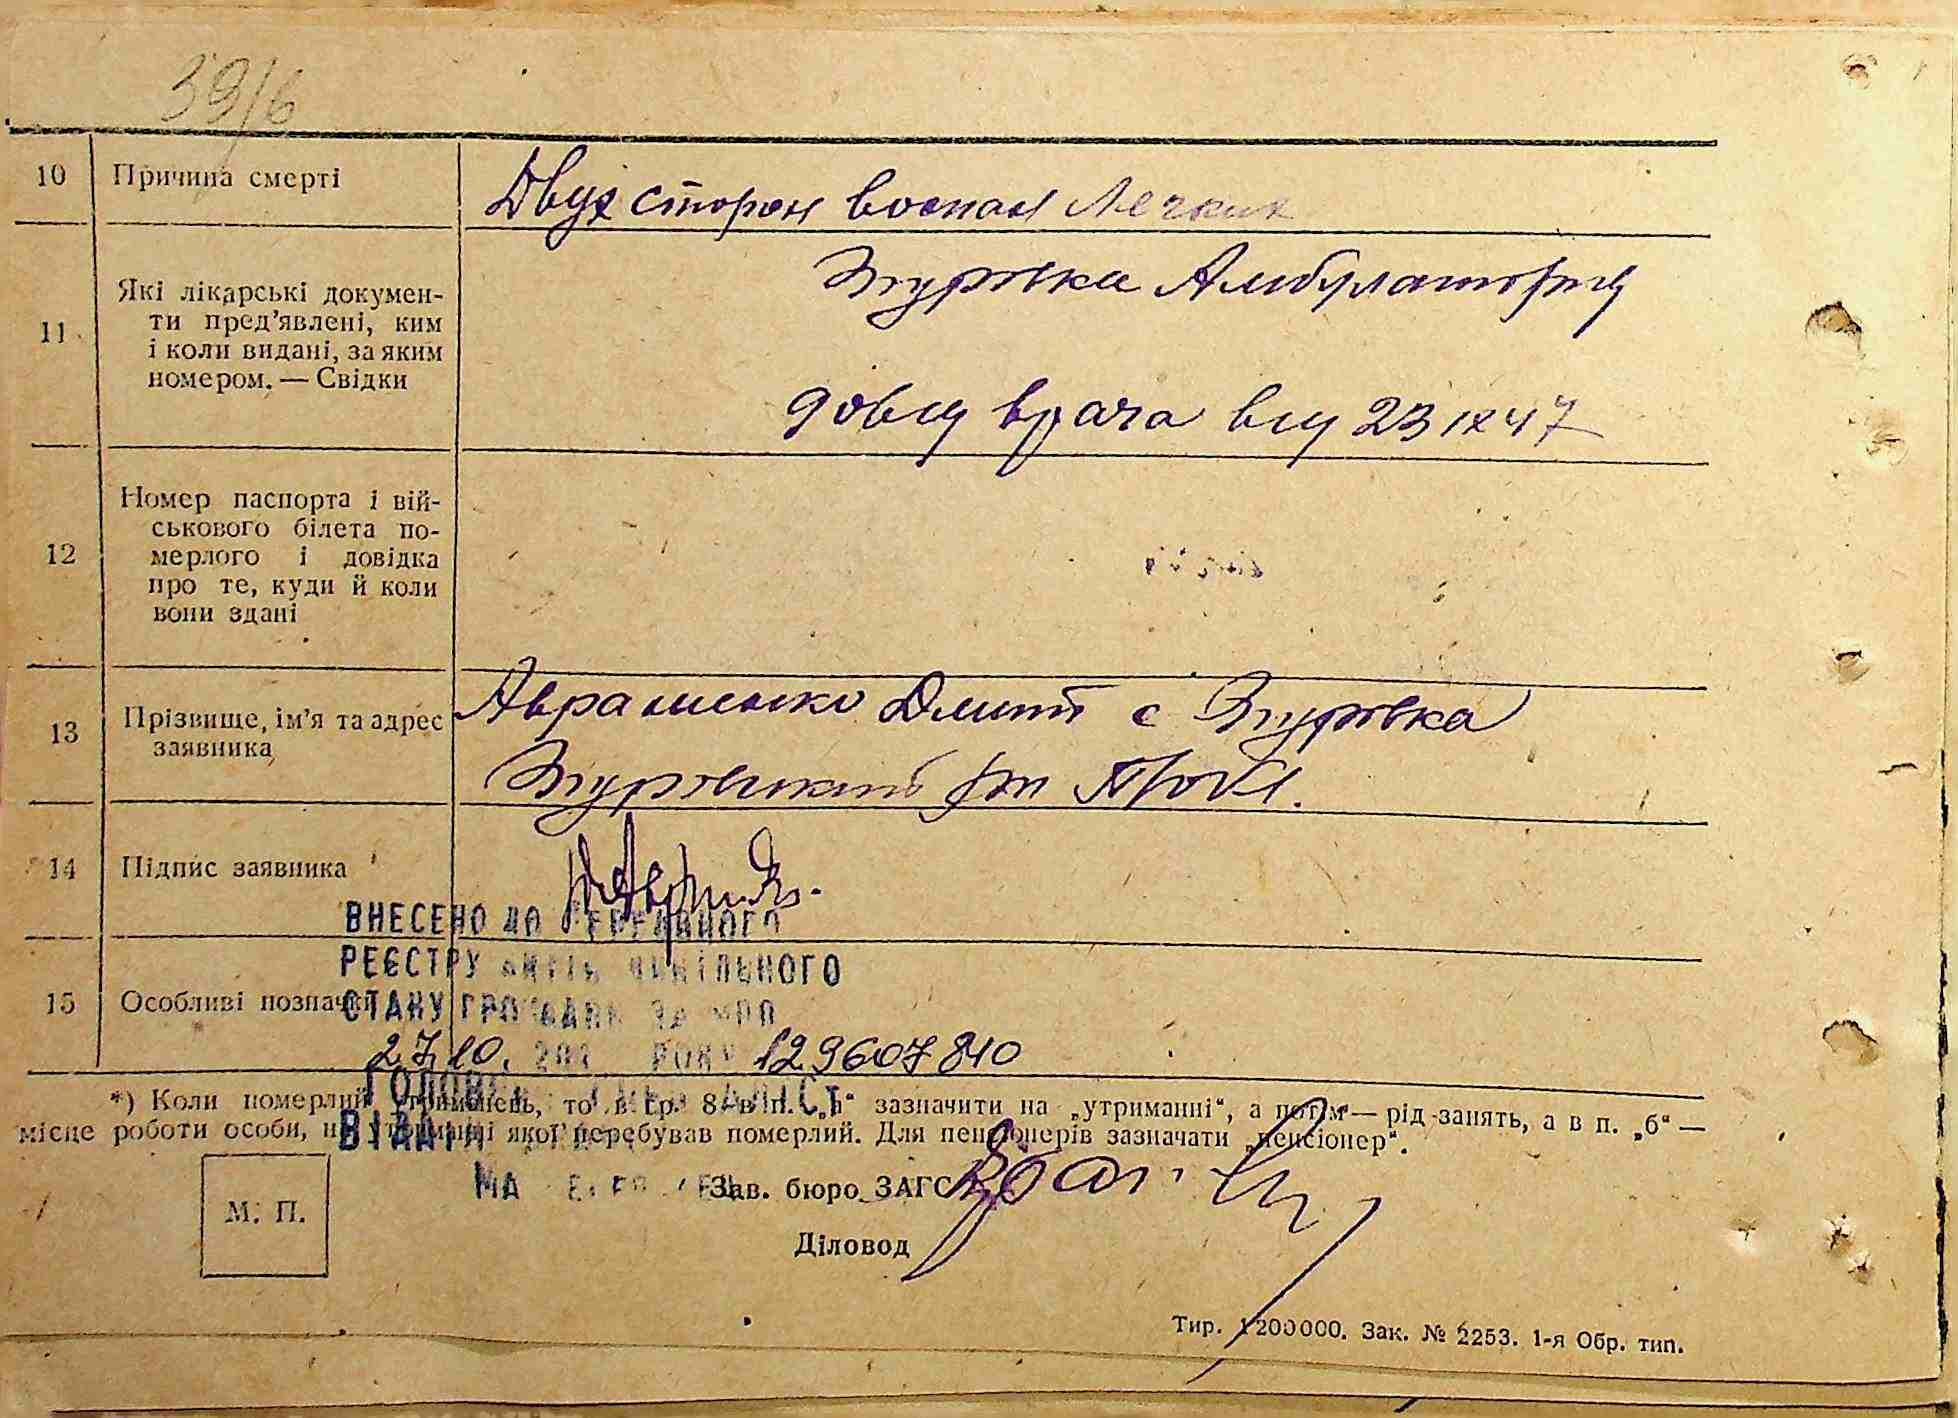 39/6
10 Причина смерті
Двух сторон воспал Легких
11 Які лікарські докумен-
ти пред'явлені, ким
і коли видані, за яким
номером. — Свідки
Згуровка Амбулатория
врача 23 IX 47
12 Номер паспорта і вій-
ськового білета по-
мерлого і довідка
про те, куди й коли
вони здані
13 Прізвище, ім'я та адрес
заявника
Аврашенко Дмит с Згуровка
Згуровский
14 Підпис заявника
ВНЕСЕНО ДО ДЕРЖАВНОГО
РЕЄСТРУ АКТІВ ЦИВІЛЬНОГО
15 Особливі позначки
СТАНУ ГРОМАДЯН ЗА №
27.10. 202 РОКУ 129607840
ГОЛОВНИЙ СПЕЦІАЛІСТ
*) Коли померлий утриманець, то в гр. 8 в п. „а“ зазначити на „утриманні“, а потім — рід занять, а в п. „б“ —
місце роботи особи, на утриманні якої перебував померлий. Для пенсіонерів зазначати „пенсіонер“.
ВІДДІЛ
Зав. бюро ЗАГС
М. П.
Діловод
Тир. 1200000. Зак. № 2253. 1-я Обр. тип.